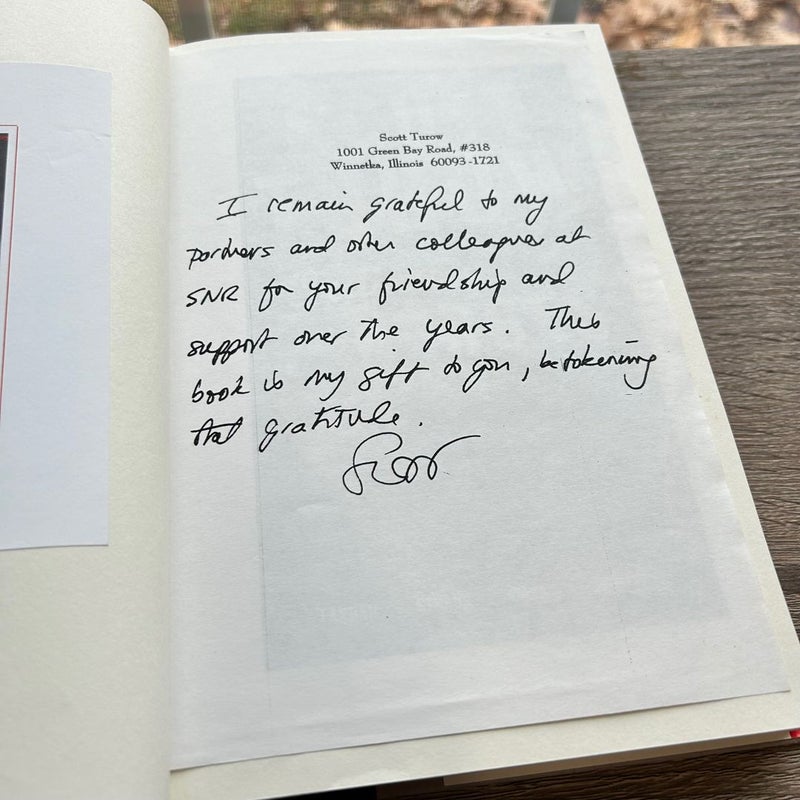 Scott Turow
1001 Green Bay Road, #318
Winnetka, Illinois 60093-1721
I remain grateful to my
partners and other colleagues at
SNR for your friendship and
support over the years. This
book is my gift to you, betokening
that gratitude.
Scott